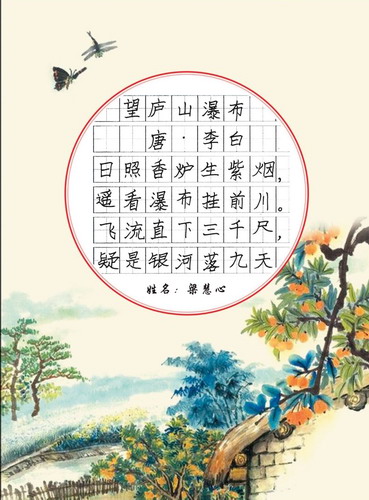 望庐山瀑布
唐·李白
日照香炉生紫烟，
遥看瀑布挂前川。
飞流直下三千尺，
疑是银河落九天
姓名：梁慧心